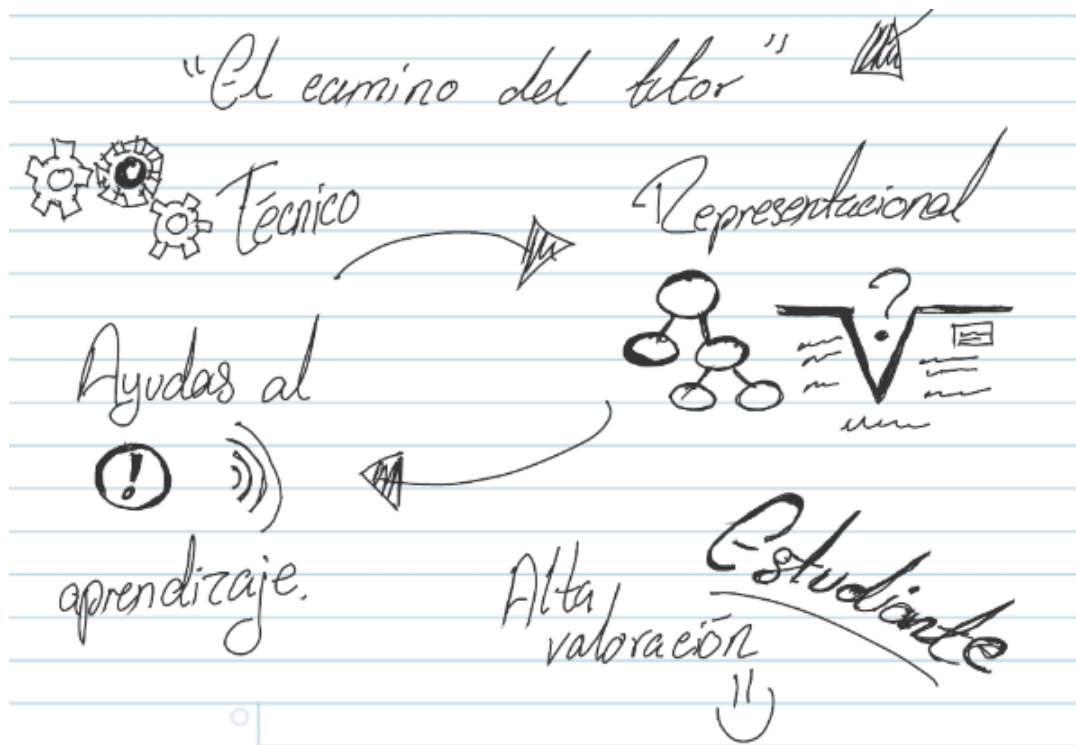 "El camino del tutor"
Técnico
Representacional
?
Ayudas al
!
aprendizaje.
Alta valoración
Estudiante